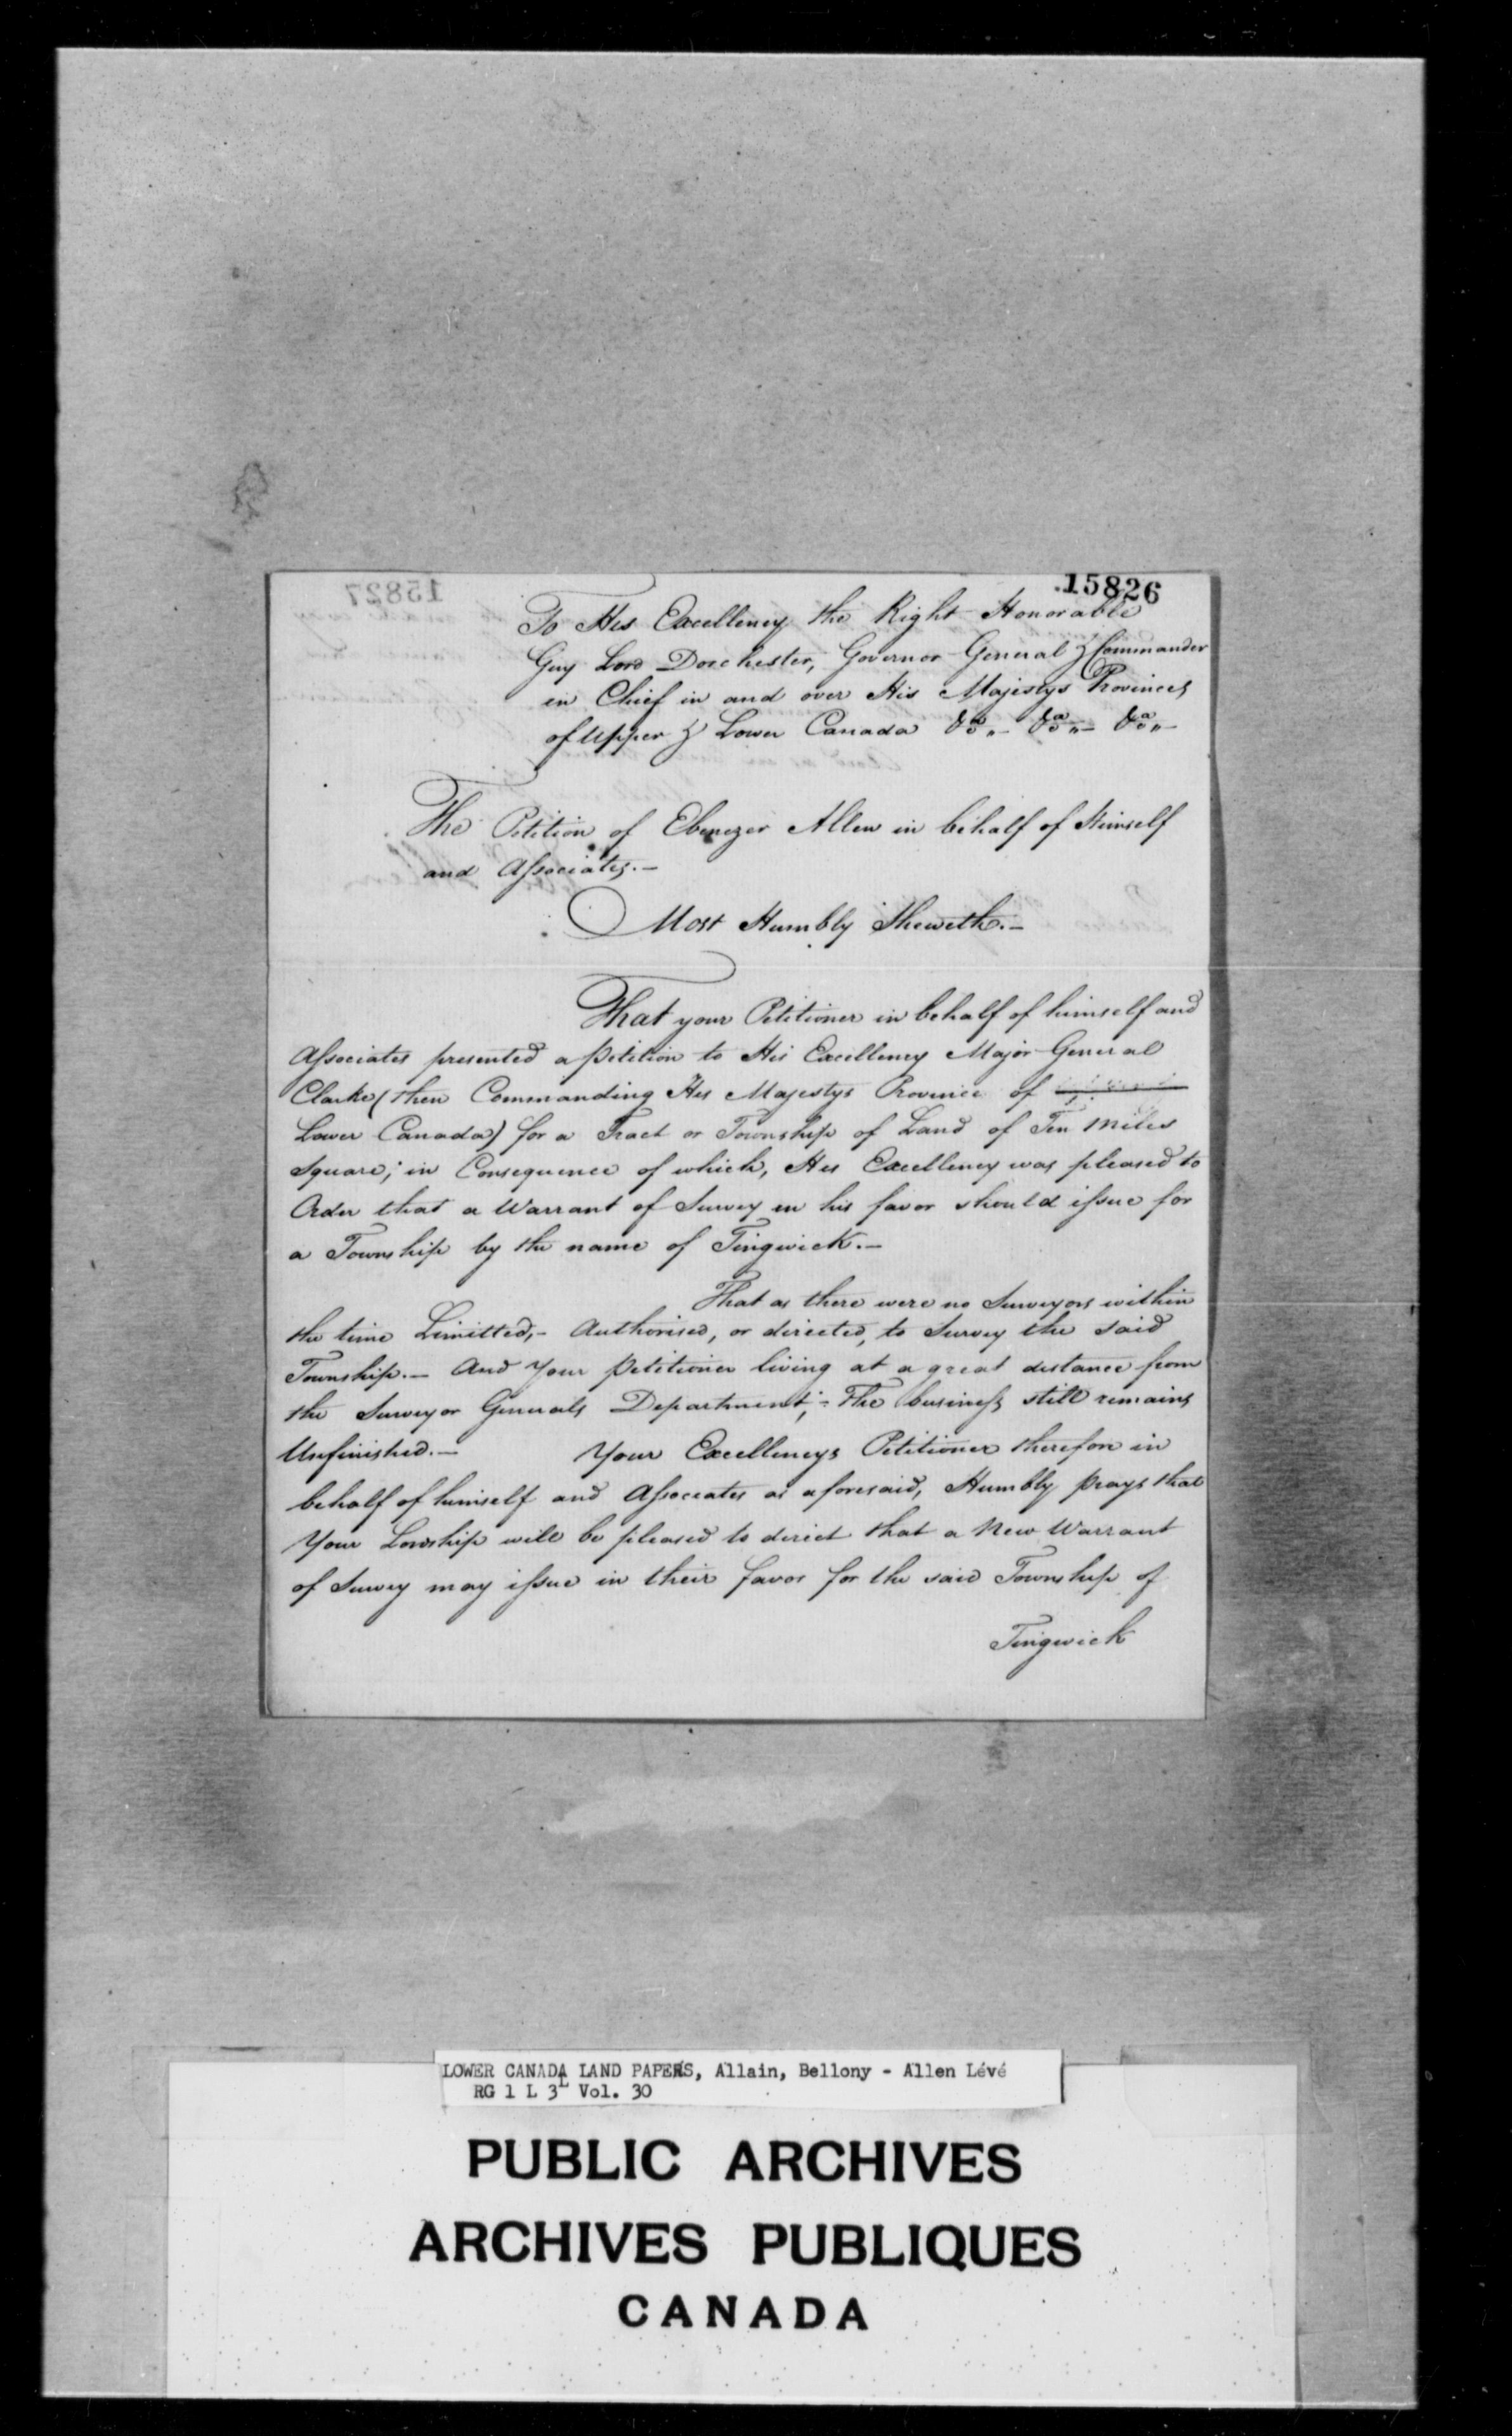 15826
15827
To His Excellency the Right Honorable
Guy Lord Dorchester, Governor General & Commander
in Chief in and over His Majestys Provinces
of Upper & Lower Canada &ca.. &ca.. &ca..
The Petition of Ebenezer Allen in behalf of Himself
and Associates.—
Most Humbly Sheweth.—
That your Petitioner in behalf of himself and
Associates presented a Petition to His Excellency Major General
Clarke (then Commanding His Majestys Province of
Lower Canada) for a Tract or Township of Land of Ten Miles
Square; in Consequence of which, His Excellency was pleased to
Order that a Warrant of Survey in his favor should issue for
a Township by the name of Tingwick.—
That as there were no Surveyors within
the time Limitted,- Authorised, or directed, to Survey the said
Township.— And Your Petitioner living at a great distance from
the Surveyor Generals Department;- The business still remains
Unfinished.— Your Excellencys Petitioner therefore in
behalf of himself and Associates as aforesaid, Humbly prays that
Your Lordship will be pleased to direct that a New Warrant
of Survey may issue in their favor for the said Township of
Tingwick
LOWER CANADA LAND PAPERS, Allain, Bellony - Allen Lévé
RG 1 L 3L Vol. 30
PUBLIC ARCHIVES
ARCHIVES PUBLIQUES
CANADA